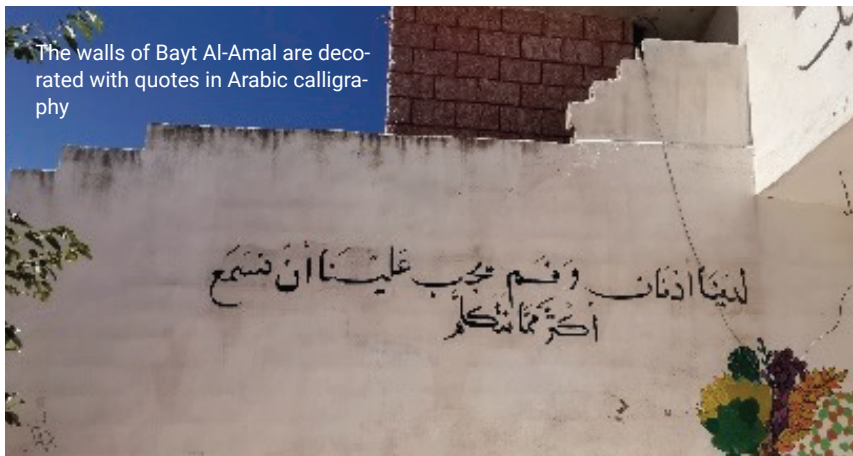 The walls of Bayt Al-Amal are deco-
rated with quotes in Arabic calligra-
phy
لَدَيْنَا اذنَان وَفَم يجب عَلَيْنَا أنْ نَسْمَع
أكثَر ممَّا نتَكَلَّم